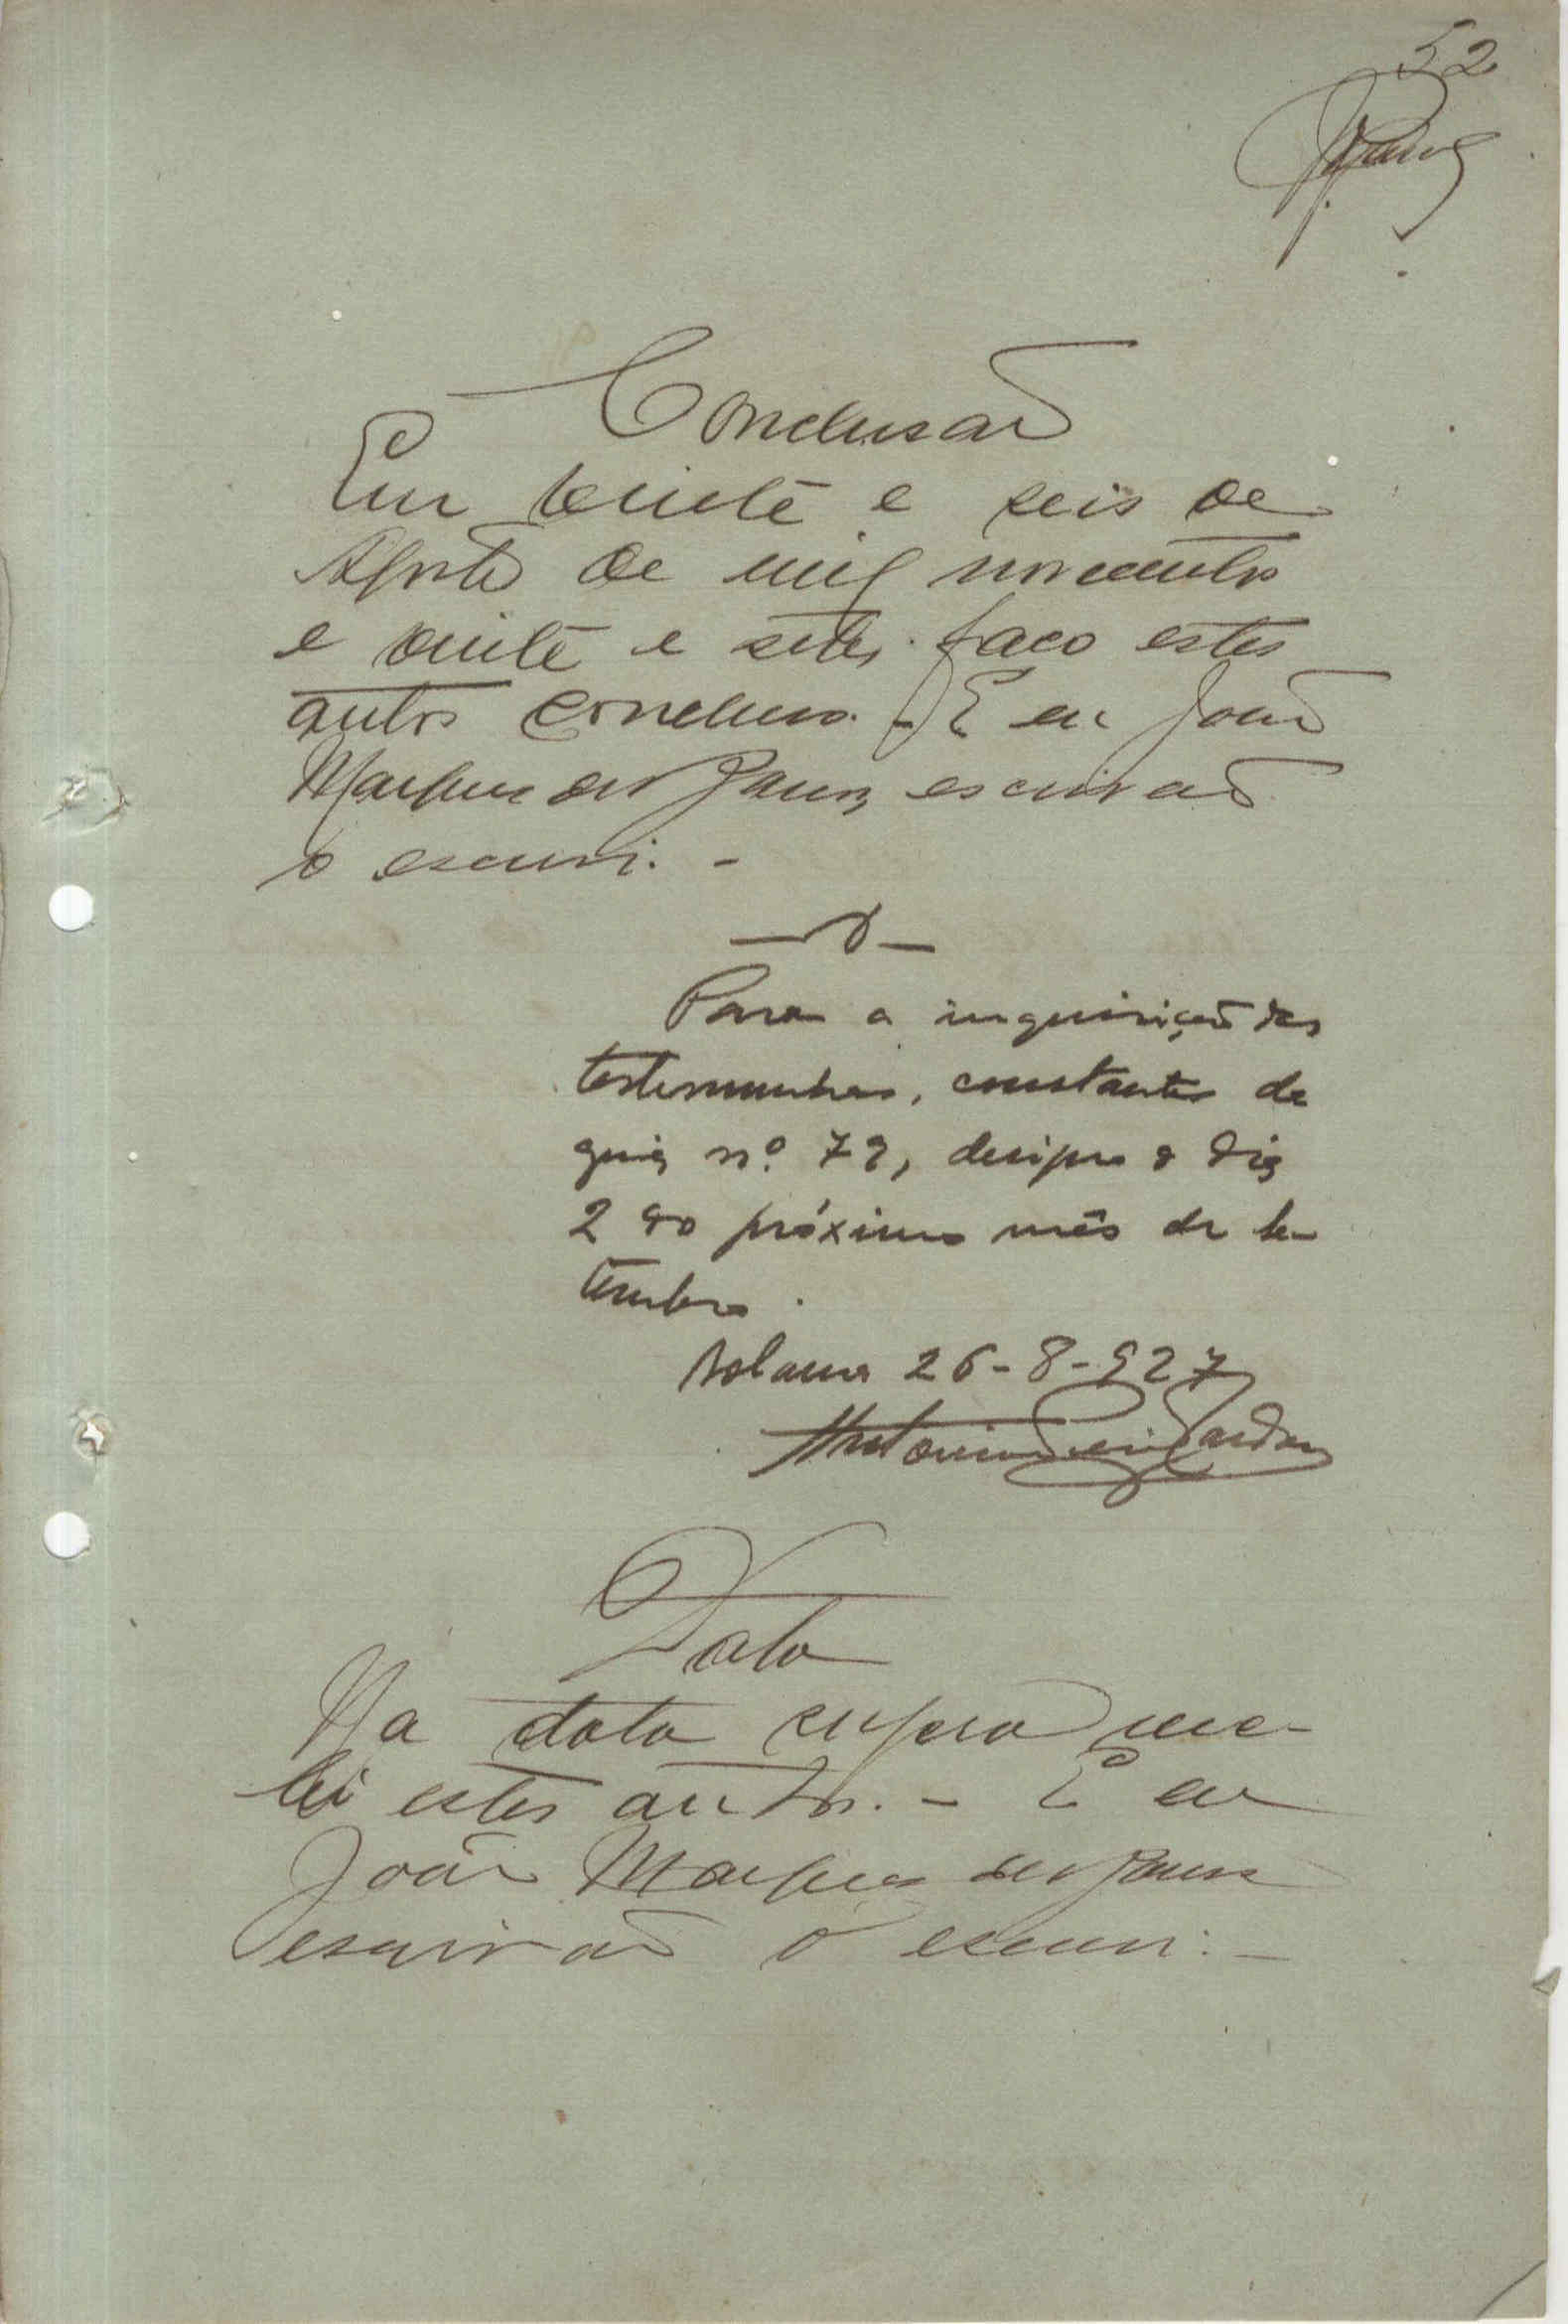 52
Conclusão
Em vinte e seis de
Agosto de mil novecentos
e vinte e sete, faço estes
autos conclusos. - E eu João
Marques de Barros, escrivão
o escrevi. -
Para a inquirição das
testemunhas, constantes da
guia nº 72, designo o dia
2 do próximo mês de Se-
tembro.
Bolama 26-8-927
Antonio
Data
Na data supra rece-
bi estes autos. - E eu
João Marques de Barros
escrivão o escrevi. -